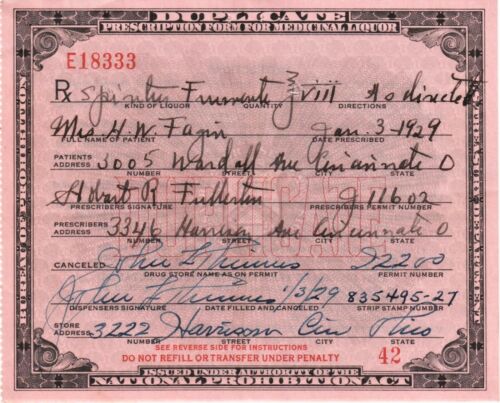 DUPLICATE
PRESCRIPTION FORM FOR MEDICINAL LIQUOR
E18333
Rx Spiritus Frumenti ʒ VIII As directed
KIND OF LIQUOR QUANTITY DIRECTIONS
Mrs H. W. Fagin Jan. 3-1929
FULL NAME OF PATIENT DATE PRESCRIBED
PATIENTS ADDRESS 3005 Wardall Ave Cincinnati O
NUMBER STREET CITY STATE
Robert R Fullerton 11602
PRESCRIBERS SIGNATURE PRESCRIBERS PERMIT NO.
PRESCRIBERS ADDRESS 3346 Harrison Ave Cincinnati O
NUMBER STREET CITY STATE
CANCELED John 22200
DRUG STORE NAME AS ON PERMIT PERMIT NUMBER
John 1/3/29 835495-27
DISPENSERS SIGNATURE DATE FILLED AND CANCELED STRIP STAMP NUMBER
STORE ADDRESS 3222 Harrison Cin Ohio
NUMBER STREET CITY STATE
SEE REVERSE SIDE FOR INSTRUCTIONS
DO NOT REFILL OR TRANSFER UNDER PENALTY 42
ISSUED UNDER AUTHORITY OF THE
NATIONAL PROHIBITION ACT
BUREAU OF PROHIBITION